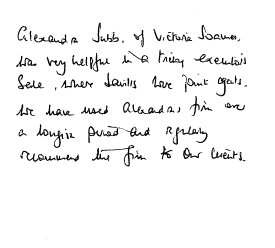 Alexandra Jubb, of Victoria Soames,
was very helpful in a tricky executors
Sale, where Savills were joint agents.
We have used Alexandra's firm over
a longish period and regularly
recommend the firm to our clients.